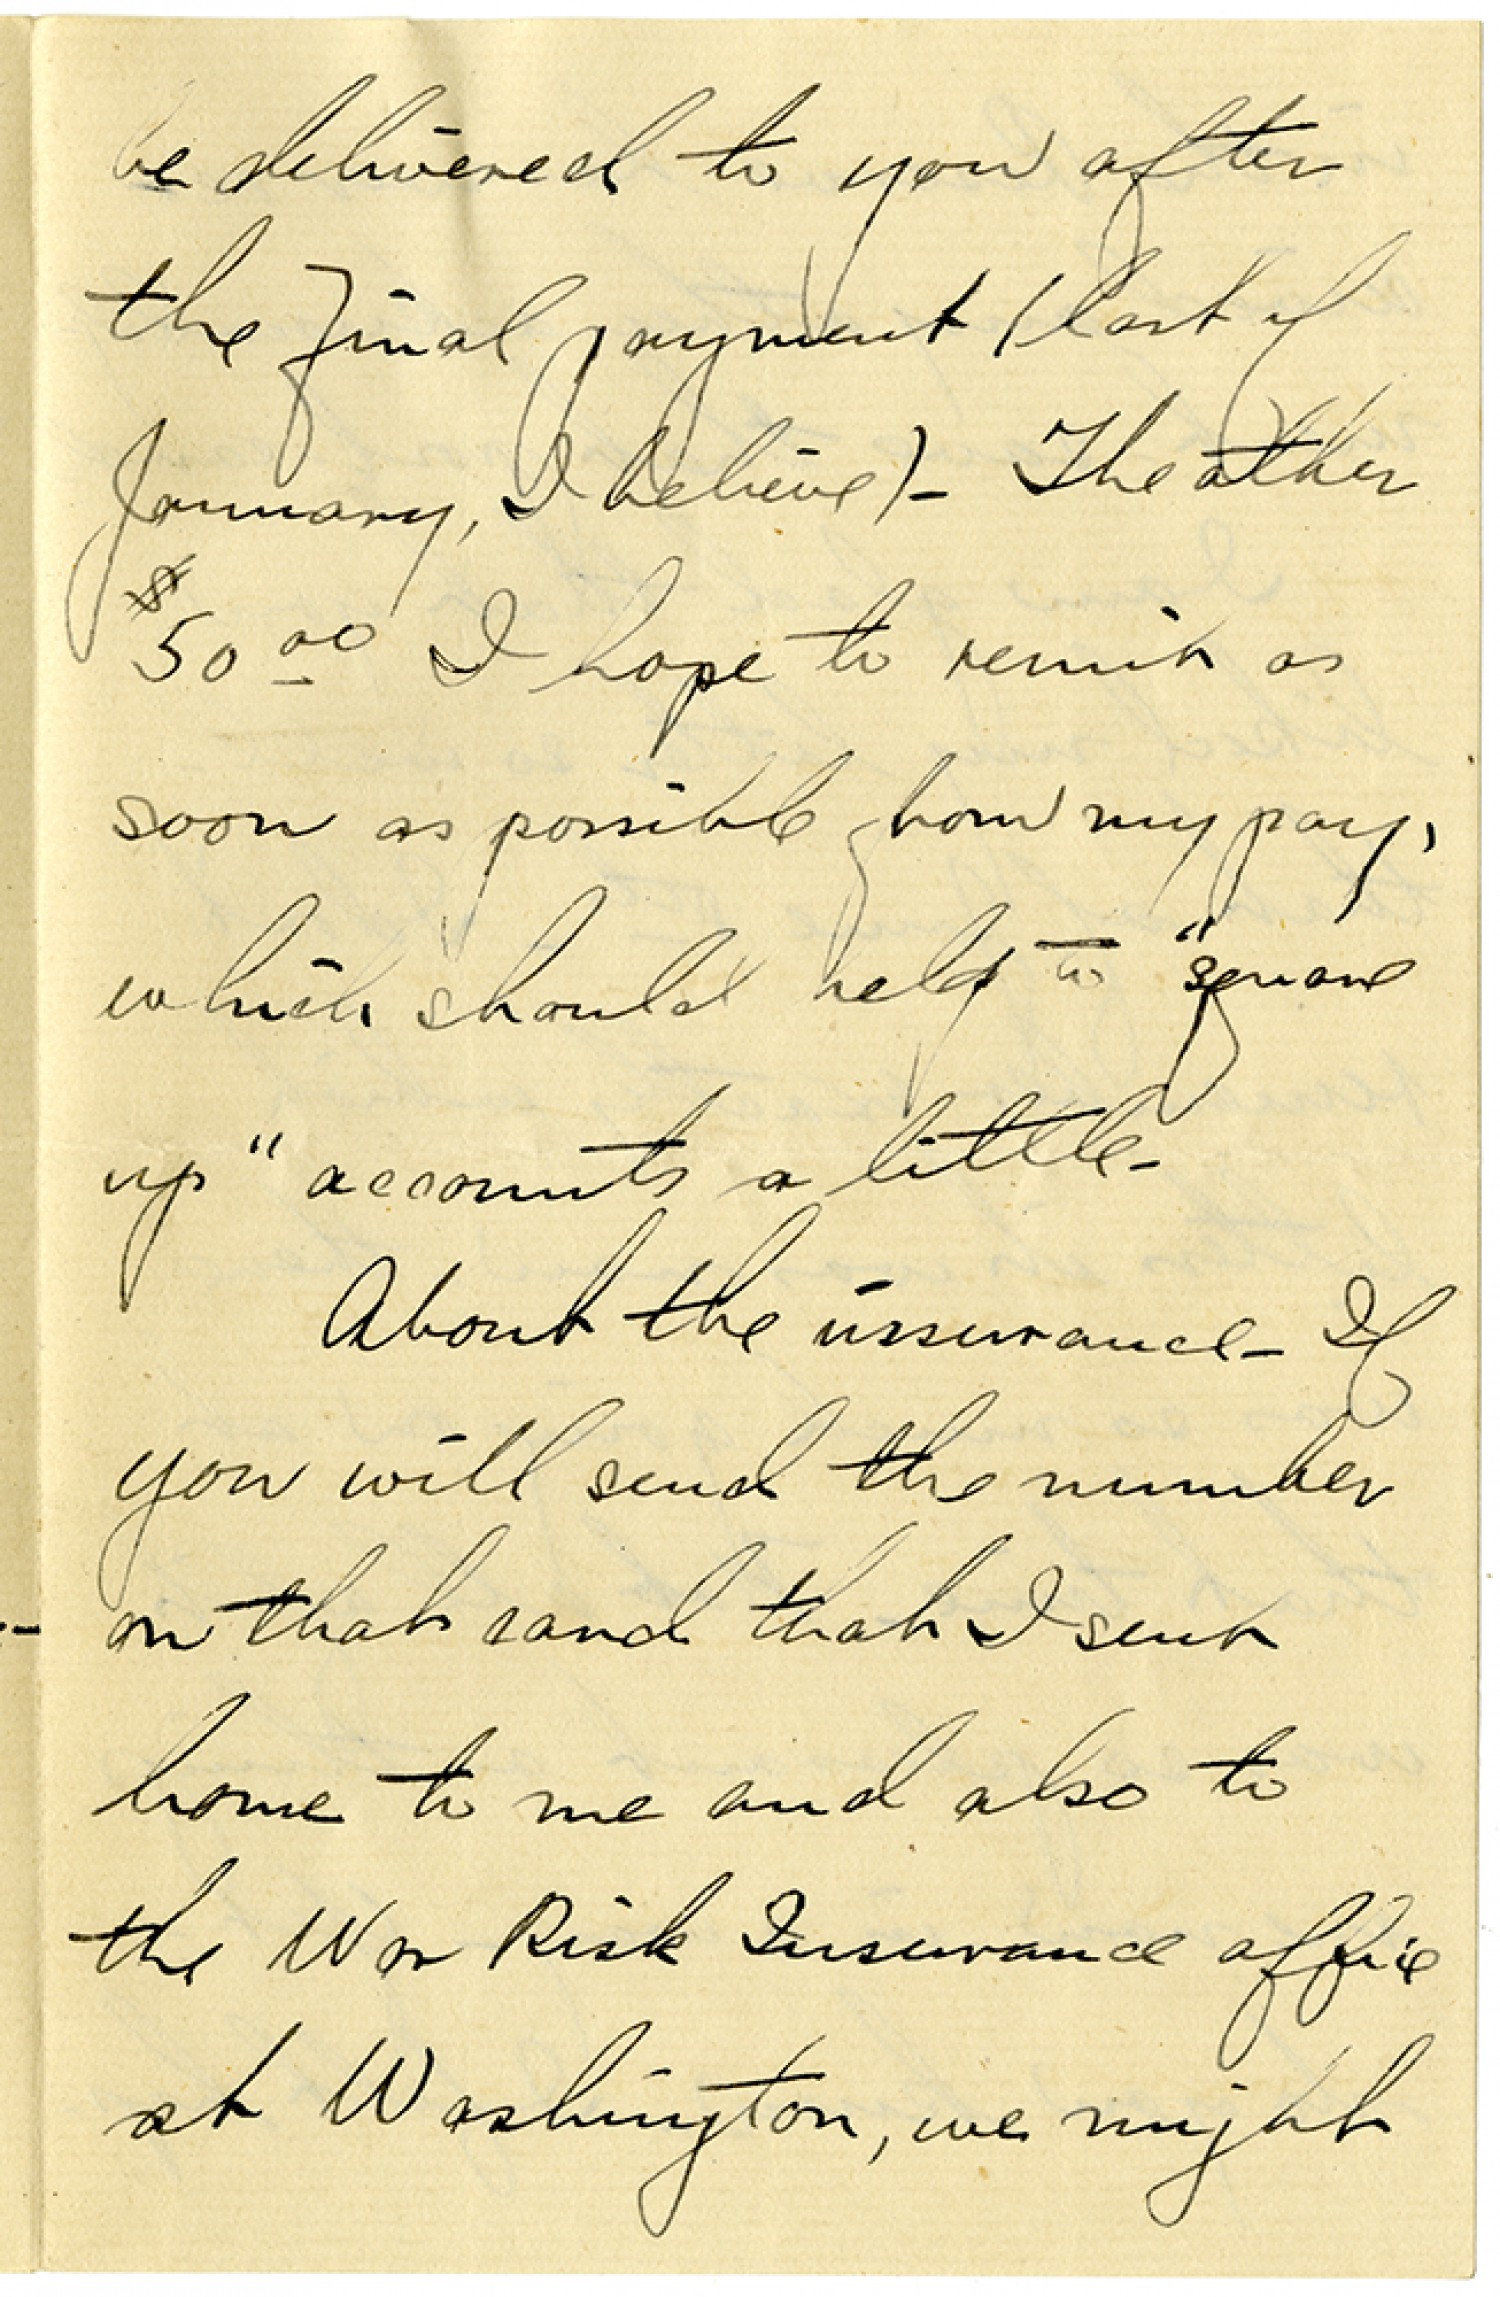 be delivered to you after
the final payment (last of
January, I believe)- The other
$50.00 I hope to remit as
soon as possible from my pay,
which should help to "square
up" accounts a little-
About the insurance- If
you will send the number
on that card that I sent
home to me and also to
the War Risk Insurance office
at Washington, we might